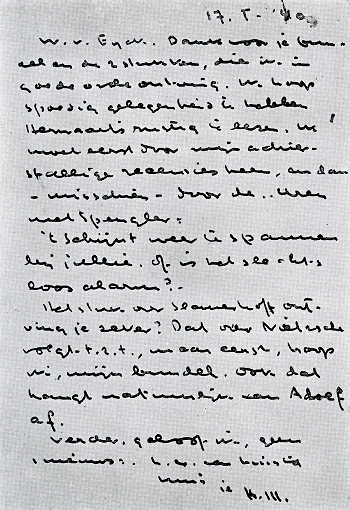 17. I. '40
W. v. Eyck. Dank voor je bun-
del en de 2 stukken, die ik in
goede orde ontving. Ik hoop
spoedig gelegenheid te hebben
rustig te lezen. Ik
moet eerst door mijn achter-
stallige recensies heen, en dan
– misschien – door de
met Spengler.
't Schijnt weer te spannen
bij jullie. of is het slechts
loos alarm? –
Het stuk over Slauerhoff ont-
ving je zeker? Dat over Nietzsche
volgt t.z.t., maar eerst, hoop
ik, mijn bundel. Ook dat
hangt natuurlijk van Adolf
af.
Verder, geloof ik, geen
nieuws. h. g. van huis tot
huis je